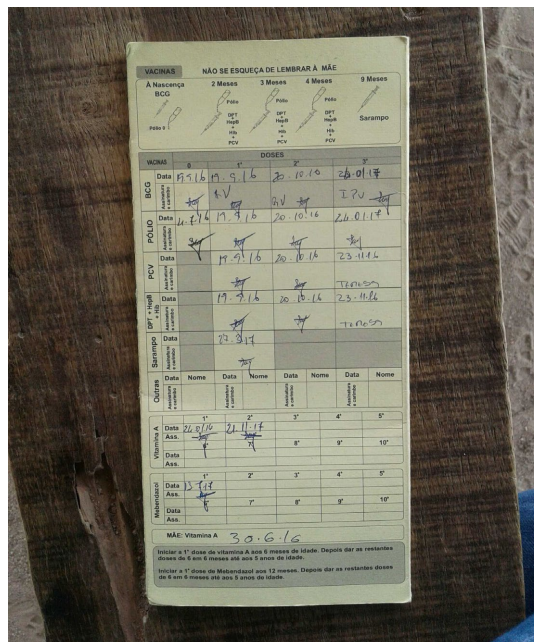 VACINAS NÃO SE ESQUEÇA DE LEMBRAR À MÃE
À Nascença 2 Meses 3 Meses 4 Meses 9 Meses
BCG
Pólio Pólio Pólio
Pólio 0
DPT DPT DPT
HepB HepB HepB
+ + +
Hib Hib Hib
+ + +
PCV PCV PCV
Sarampo
DOSES
VACINAS 0 1ª 2ª 3ª
BCG Data 19.9.16 20.10.16
Assinatura e carimbo
PÓLIO Data 19.9.16 20.10.16 24.01.17
Assinatura e carimbo
PCV Data 19.9.16 20.10.16 23.11.16
Assinatura e carimbo
DPT + HepB + Hib Data 19.9.16 20.10.16 23.11.16
Assinatura e carimbo
Sarampo Data
Assinatura e carimbo
Outras Data Nome Data Nome Data Nome Data Nome
Assinatura e carimbo Assinatura e carimbo Assinatura e carimbo Assinatura e carimbo
Vitamina A
1ª 2ª 3ª 4ª 5ª
Data 21.11.17
Ass.
7ª 8ª 9ª 10ª
Data
Ass.
Mebendazol
1ª 2ª 3ª 4ª 5ª
Data 13.7.17
Ass.
7ª 8ª 9ª 10ª
Data
Ass.
MÃE: Vitamina A 30.6.16
Iniciar a 1ª dose de vitamina A aos 6 meses de idade. Depois dar as restantes
doses de 6 em 6 meses até aos 5 anos de idade.
Iniciar a 1ª dose de Mebendazol aos 12 meses. Depois dar as restantes doses
de 6 em 6 meses até aos 5 anos de idade.